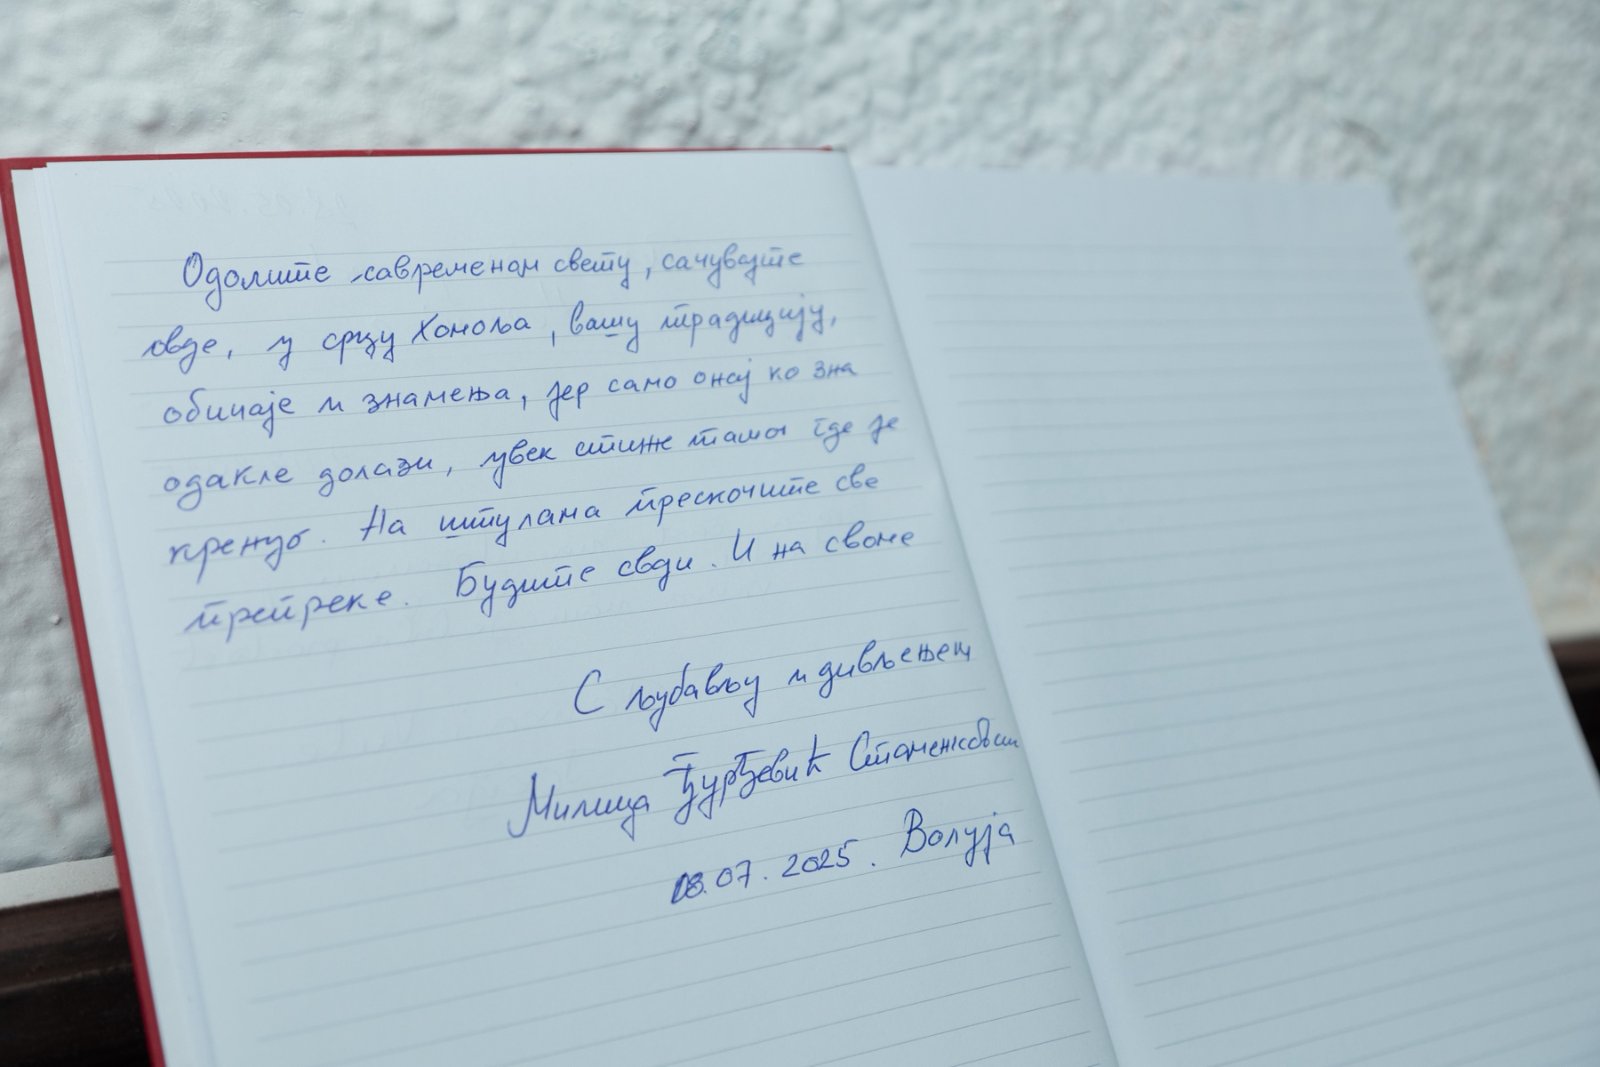 Одолите савременом свету, сачувајте
овде, у срцу Хомоља, вашу традицију,
обичаје и знамења, јер само онај ко зна
одакле долази, увек стиже тамо где је
кренуо. На штулама прескочите све
препреке. Будите своји. И на своме
С љубављу и дивљењем
Милица Ђурђевић Стаменковски
08.07.2025. Волуја